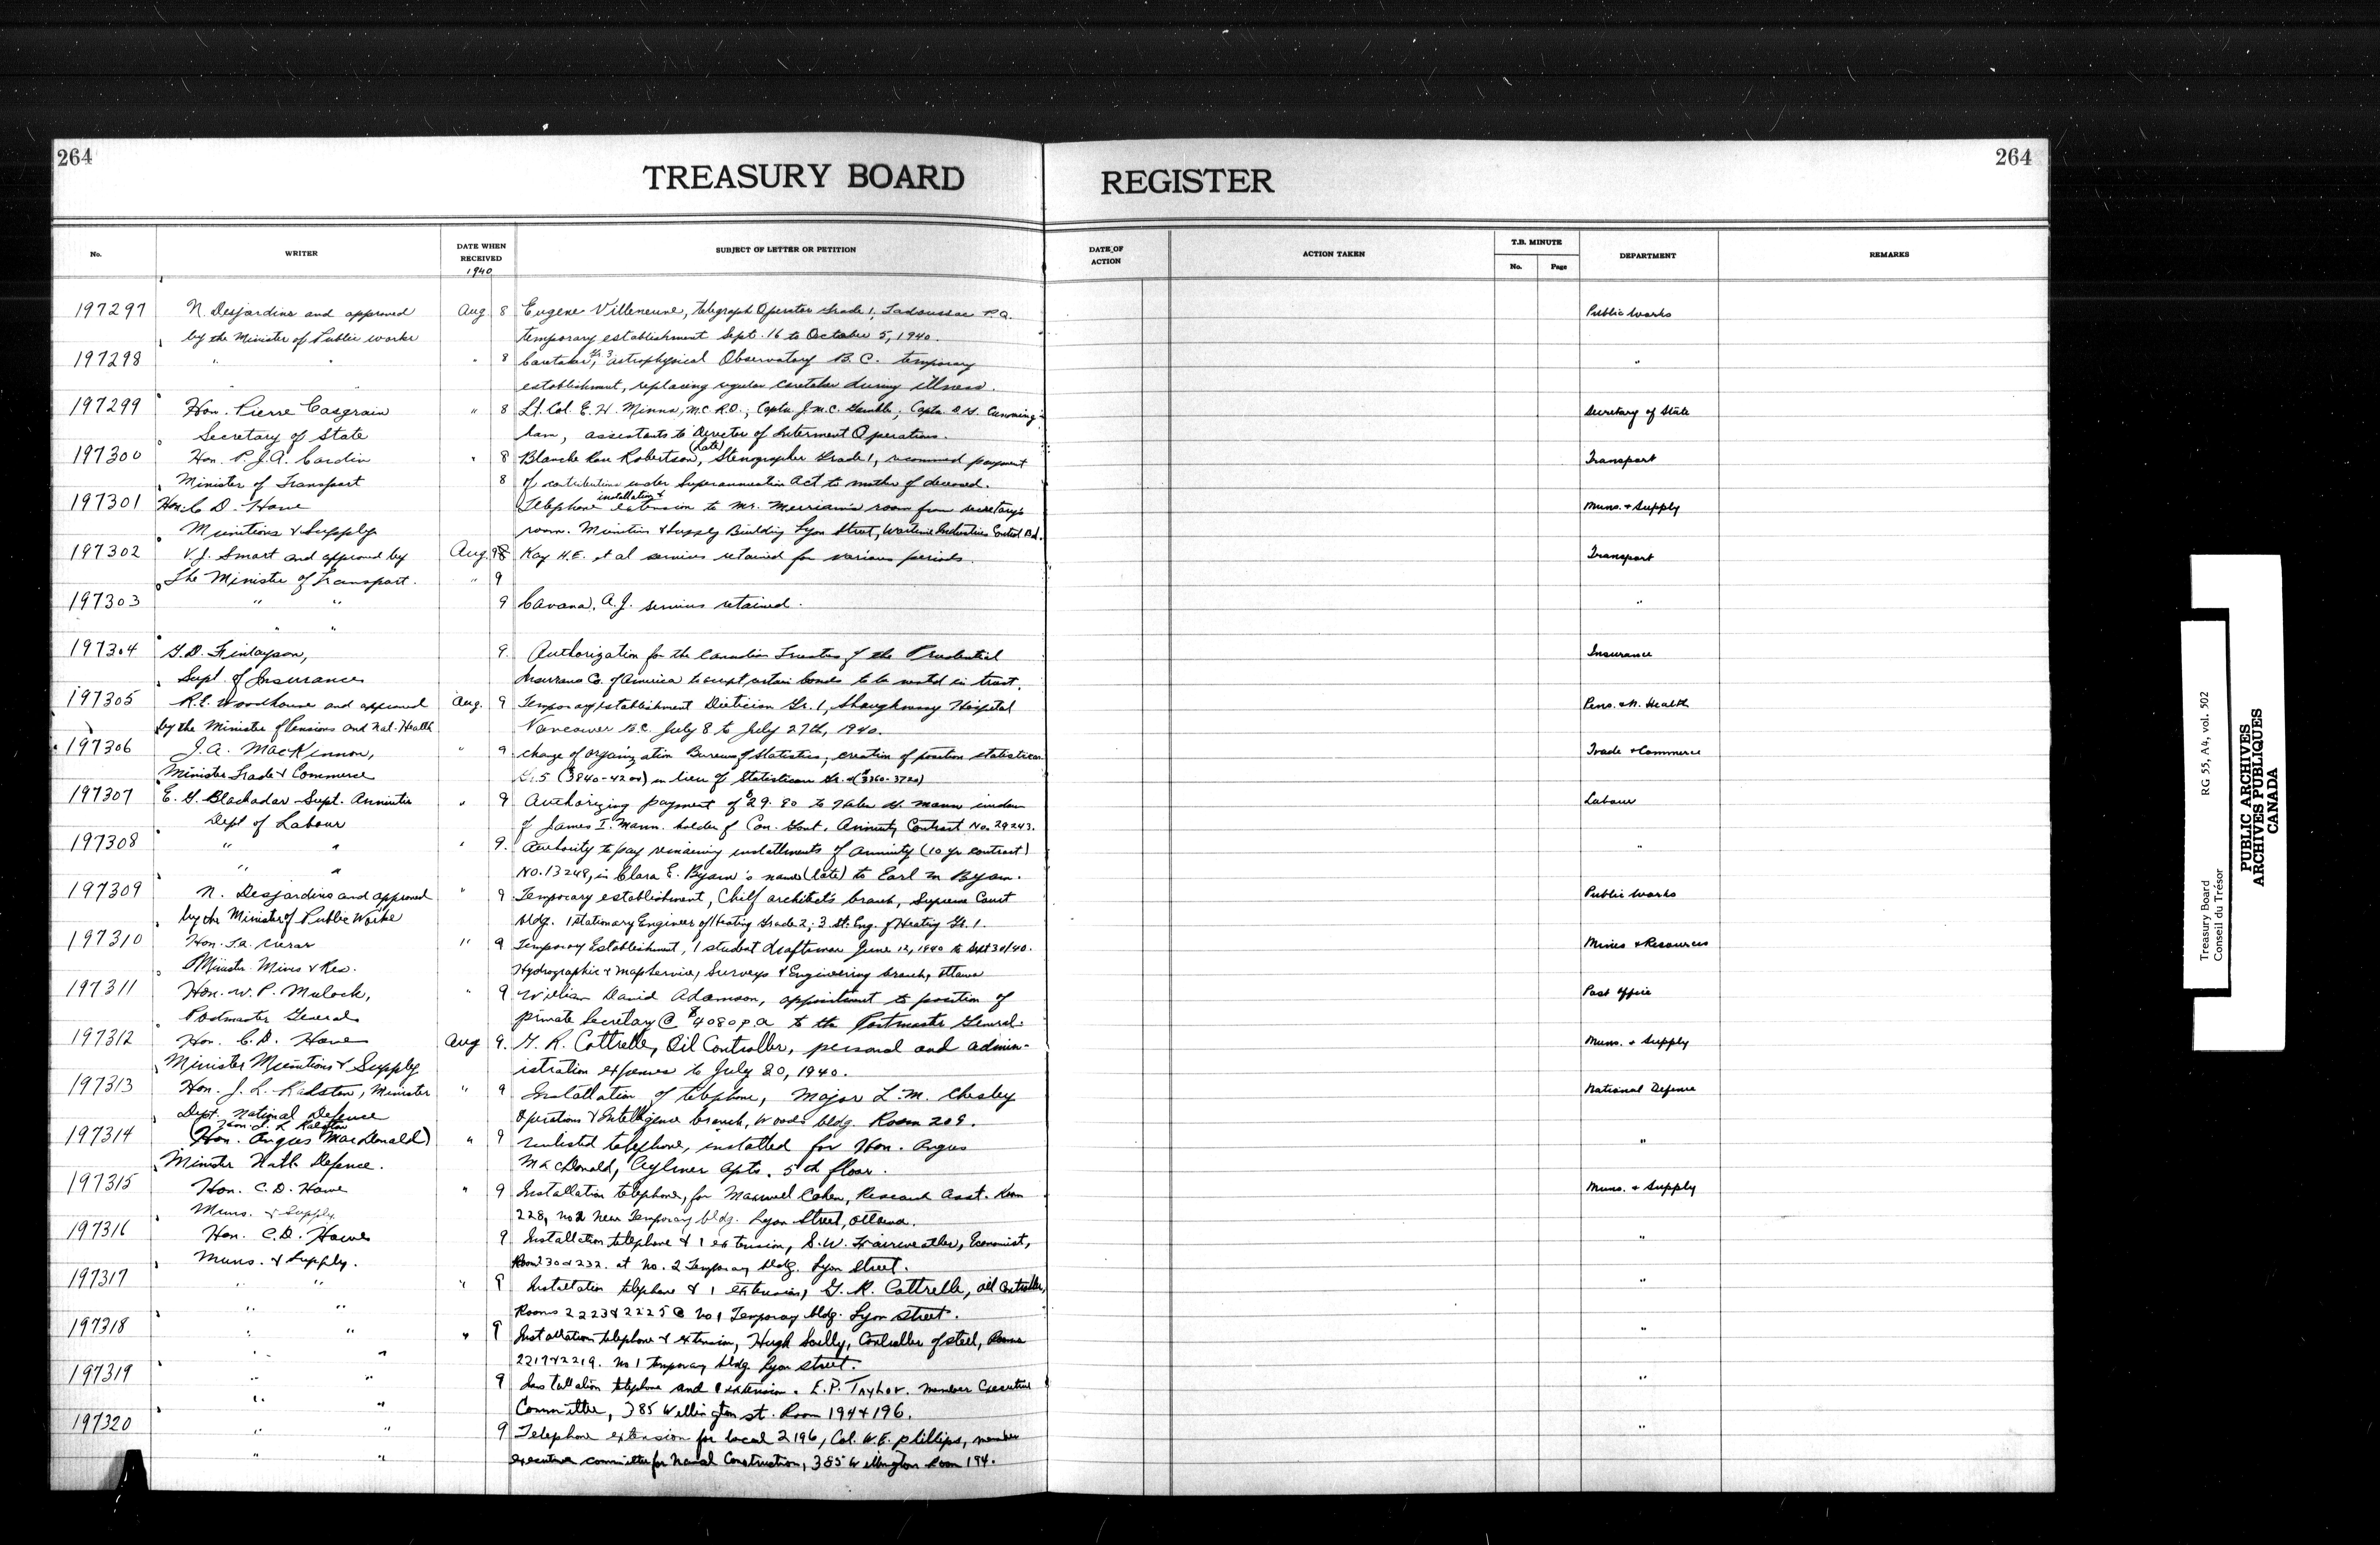 264
264
TREASURY BOARD REGISTER
No. WRITER DATE WHEN RECEIVED 1940 SUBJECT OF LETTER OR PETITION DATE OF ACTION ACTION TAKEN T.B. MINUTE No. Page DEPARTMENT REMARKS
197297 N. Desjardins and approved Aug 8 Eugene Villeneuve, Telegraph Operator Grade 1, Tadoussac P.Q. Public Works
by the Minister of Public works temporary establishment Sept. 16 to October 5, 1940.
197298 " " " 8 Caretaker, Gr. 3 astrophysical Observatory B.C. temporary "
" " establishment, replacing regular caretaker during illness.
197299 Hon. Pierre Casgrain " 8 Lt. Col. E. H. Minns, M.C. R.O.; Capta. J. M. C. Gamble; Capta. D. H. Cunning- Secretary of State
Secretary of State ham, assistants to Director of Interment Operations.
197300 Hon. P. J. A. Cardin " 8 Blanche Rose Robertson, (late) Stenographer Grade 1, recommend payment Transport
Minister of Transport 8 of contributions under Superannuation Act to mother of deceased.
197301 Hon. C. D. Howe Telephone installation & extension to Mr. Merriam's room from secretary's Muns. & Supply
Munitions & Supply room. Munitions & Supply Building Lyon Street, Wartime Industries Control Bd.
197302 V. I. Smart and approved by Aug. 98 Kay H.E. et al services retained for various periods. Transport
The Minister of Transport. " 9
197303 " " 9 Cavana, A. J. services retained. "
" "
197304 G. D. Finlayson, 9. Authorization for the Canadian Trustee of the Prudential Insurance
Supt. of Insurance Insurance Co. of America to accept certain bonds to be vested in trust.
197305 R. E. Woodhouse and approved Aug. 9 Temporary establishment Dietician Gr. 1, Shaughnessy Hospital Pens. & N. Health
by the Minister of Pensions and Nat. Health Vancouver B.C. July 8 to July 27th, 1940.
197306 J. A. MacKinnon, " 9 change of organization Bureau of Statistics, creation of position statistician Trade & Commerce
Minister Trade & Commerce Gr. 5 ($3840-4200) in lieu of Statistician Gr. 4 ($3360-3720)
197307 E. G. Blackadar Supt. Annuities " 9 Authorizing payment of $29.80 to Helen H. Mann widow Labour
Dept of Labour of James I. Mann. holder of Can. Govt. Annuity Contract No. 29243.
197308 " " " 9. Authority to pay remaining installments of annuity (10 yr contract) "
" " No. 13248, in Clara E. Byam's name (late) to Earl M. Byam.
197309 N. Desjardins and approved " 9 Temporary establishment, Chief architect's branch, Supreme Court Public Works
by the Minister of Public Works bldg. 1 Stationary Engineer of Heating Grade 2; 3 St. Eng. of Heating Gr. 1.
197310 Hon. T.A. Crerar " 9 Temporary Establishment, 1 student draftsman June 12, 1940 to Sept 30/40. Mines & Resources
Minister Mines & Res. Hydrographic & Map Service, Surveys & Engineering branch, Ottawa
197311 Hon. W. P. Mulock, " 9 William David Adamson, appointment to position of Post Office
Postmaster General private Secretary @ $4080 p.a to the Postmaster General.
197312 Hon. C. D. Howe Aug 9. G. R. Cottrelle, Oil Controller, personal and admin- Muns. & Supply
Minister Munitions & Supply istration expenses to July 20, 1940.
197313 Hon. J. L. Ralston, Minister " 9 Installation of telephone, Major L. M. Chesley National Defence
Dept. National Defence Operations & Intelligence branch, Woods bldg. Room 209.
197314 (Hon. J. L. Ralston Hon. Angus MacDonald) " 9 unlisted telephone, installed for Hon. Angus "
Minister Natl. Defence. MacDonald, Aylmer Apts. 5th floor.
197315 Hon. C. D. Howe " 9 Installation telephone, for Maxwell Cohen, Research Asst. Room Muns. & Supply
Muns. & Supply. 228, No 2 New Temporary bldg. Lyon Street, Ottawa.
197316 Hon. C. D. Howe 9 Installation telephone & 1 extension, S. W. Fairweather, Economist, "
Muns. & Supply. Room 230 & 232. at No. 2 Temporary bldg. Lyon Street.
197317 " " " 9 Installation telephone & 1 extension, G. R. Cottrelle, Oil Controller, "
" " Rooms 2223 & 2225 @ No 1 Temporary bldg. Lyon Street.
197318 " " " 9 Installation telephone & extension, Hugh Scully, Controller of steel, Rooms "
" " 2217 & 2219. No 1 Temporary bldg. Lyon street.
197319 " " 9 Installation telephone and extension. E. P. Taylor. member Executive "
" " Committee, 385 Wellington st. Room 194 & 196.
197320 " " 9 Telephone extension for local 2196, Col. W. E. Phillips, member "
" " executive committee for Naval Construction, 385 Wellington Room 194.
Treasury Board RG 55, A4, vol. 502
Conseil du Trésor
PUBLIC ARCHIVES
ARCHIVES PUBLIQUES
CANADA